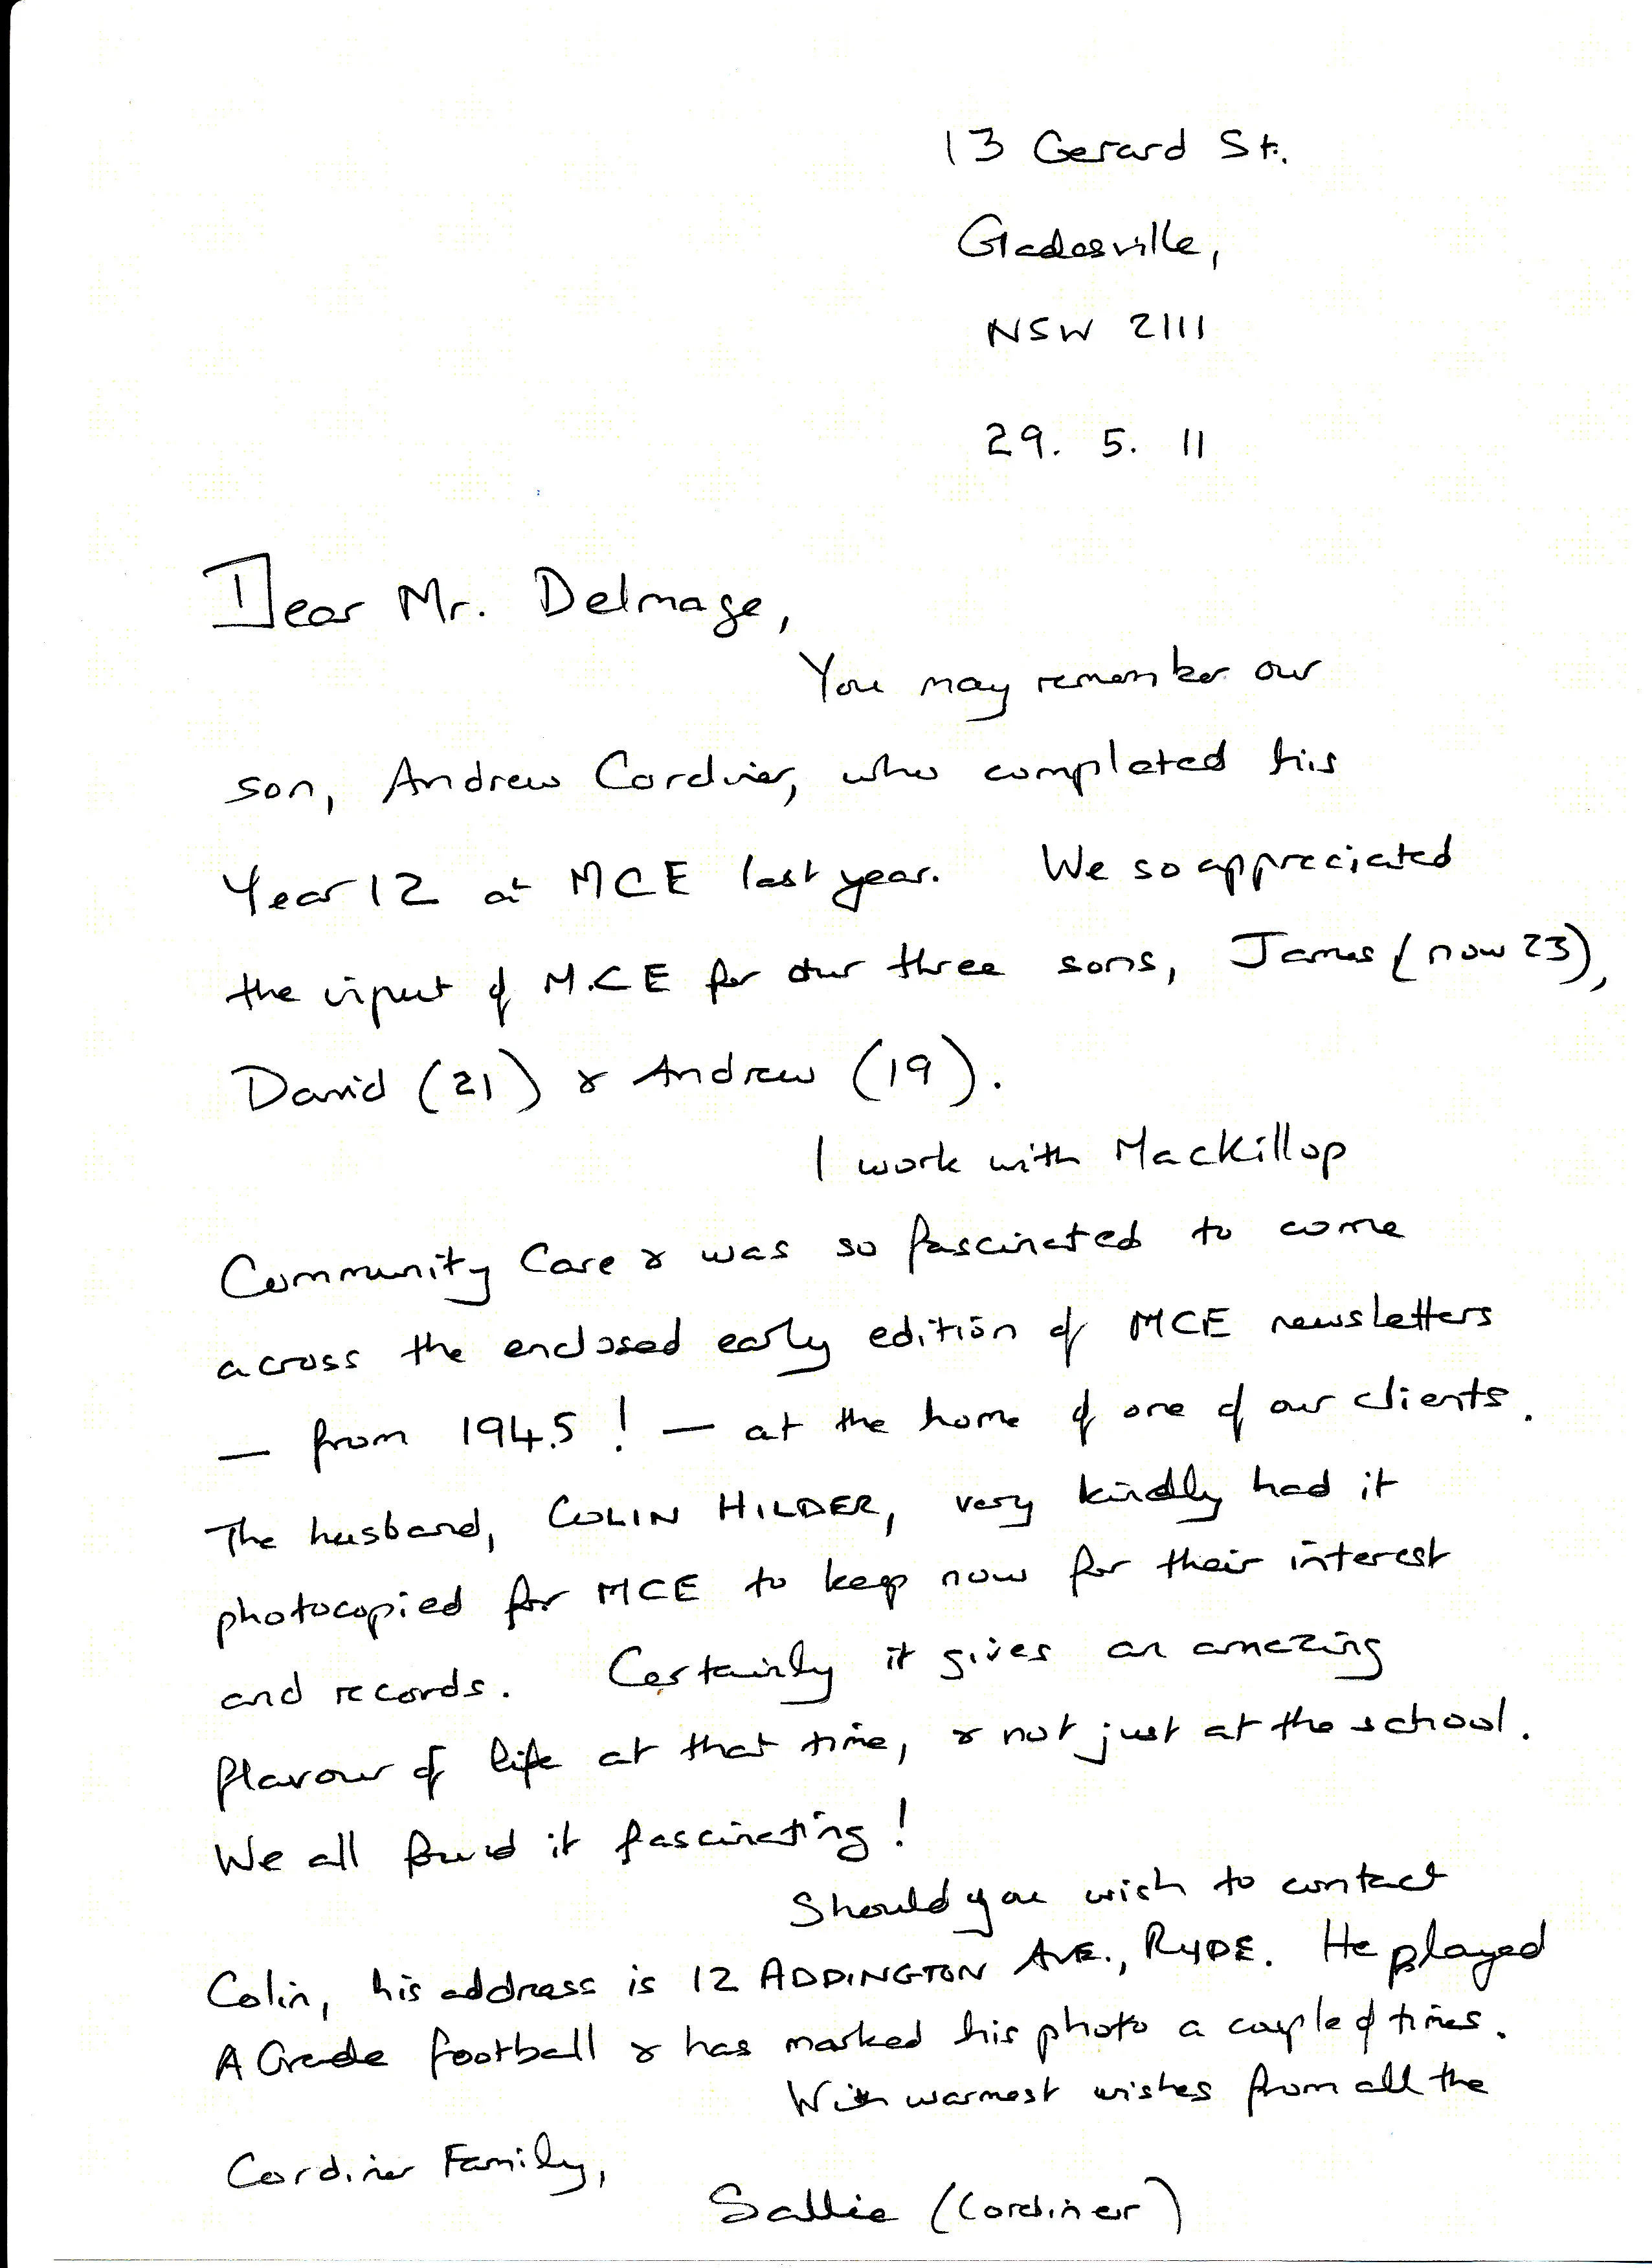 13 Gerard St.
Gladesville,
NSW 2111
29. 5. 11
Dear Mr. Delmage,
You may remember our
son, Andrew Cordiner, who completed his
Year 12 at MCE last year. We so appreciated
the input of M.C.E for our three sons, James (now 23),
David (21) & Andrew (19).
I work with MacKillop
Community Care & was so fascinated to come
across the enclosed early edition of MCE newsletters
— from 1945! — at the home of one of our clients.
The husband, COLIN HILDER, very kindly had it
photocopied for MCE to keep now for their interest
and records. Certainly it gives an amazing
flavour of life at that time, & not just at the school.
We all found it fascinating!
Should you wish to contact
Colin, his address is 12 ADDINGTON AVE., RYDE. He played
A Grade football & has marked his photo a couple of times.
With warmest wishes from all the
Cordiner Family,
Sallie (Cordiner)